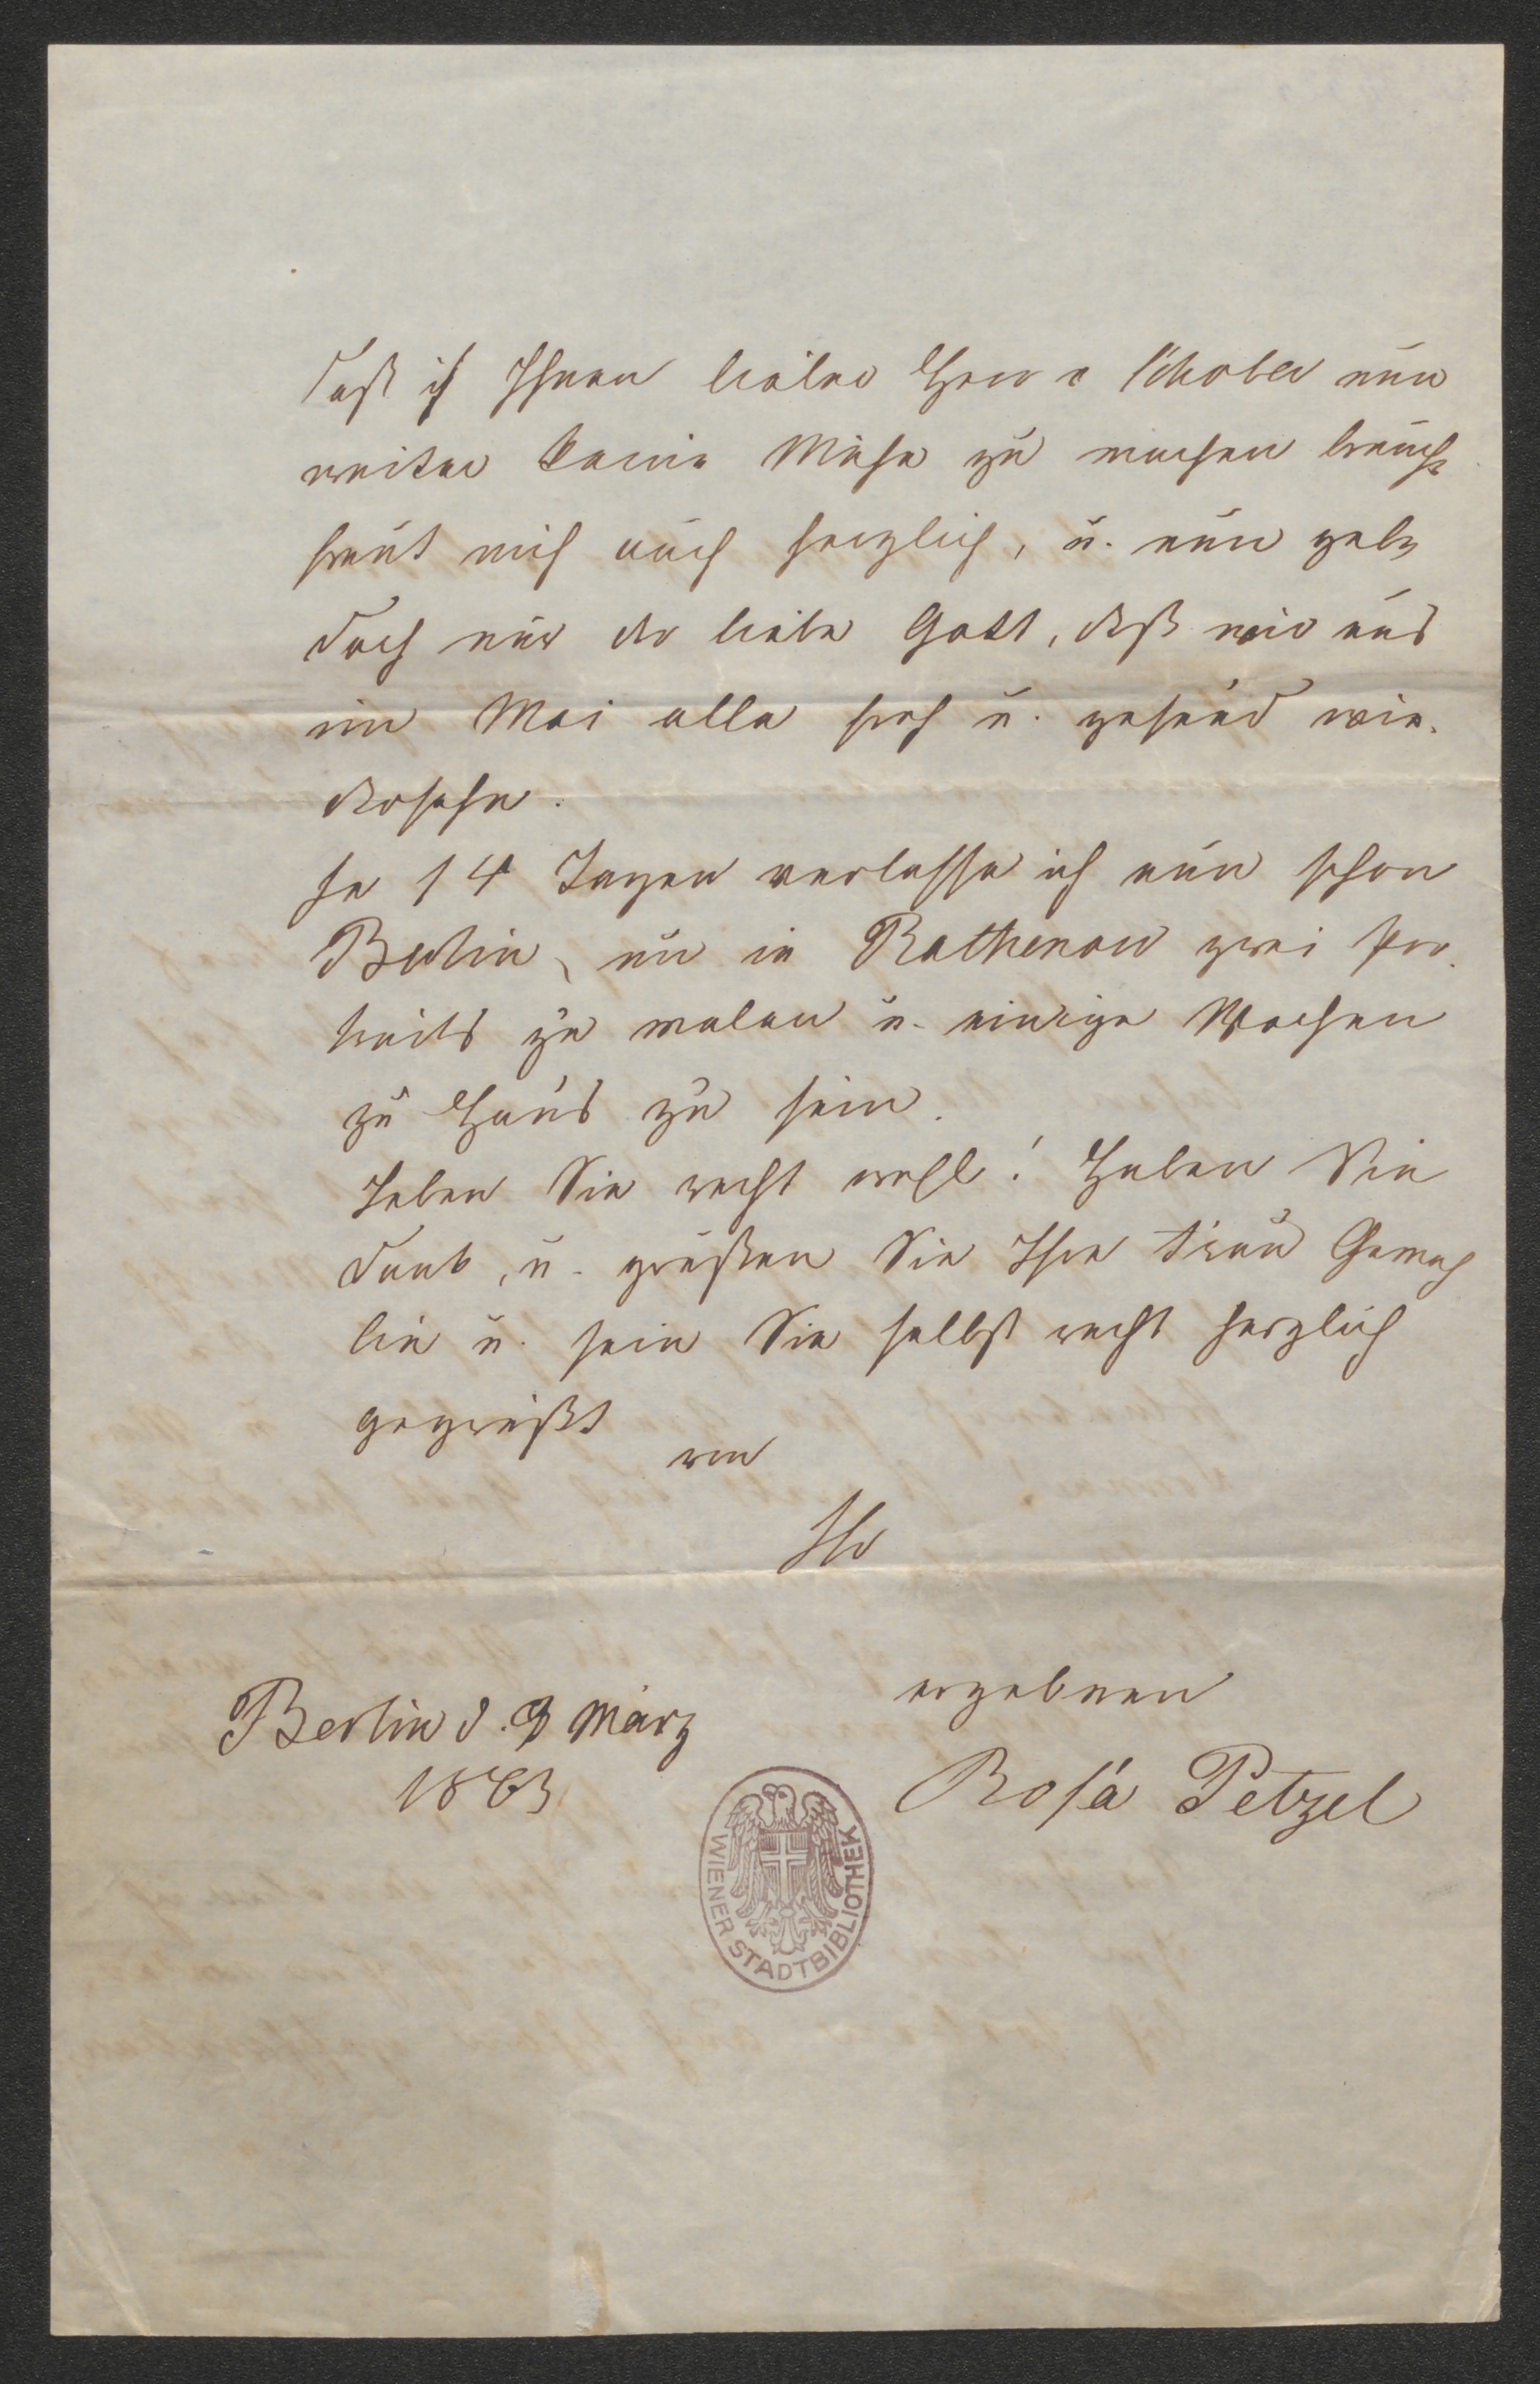 daß ich Ihnen lieber Herr v Schober nun
weiter keine Mühe zu machen brauche
freut mich auch herzlich, u. nun gebe
doch nur der liebe Gott, daß wir uns
im Mai alle froh u. gesund wie-
dersehn.
In 14 Tagen verlasse ich nun schon
Berlin, um in Rathenow zwei Por-
traits zu malen u. einige Wochen
zu Haus zu sein.
Leben Sie recht wohl! Haben Sie
Dank, u. grüßen Sie Ihre Frau Gemah
lin u. sein Sie selbst recht herzlich
gegrüßt
von
Ihr
ergebnen
Berlin d. 9 März
1863
Rosa Petzel
WIENER STADTBIBLIOTHEK